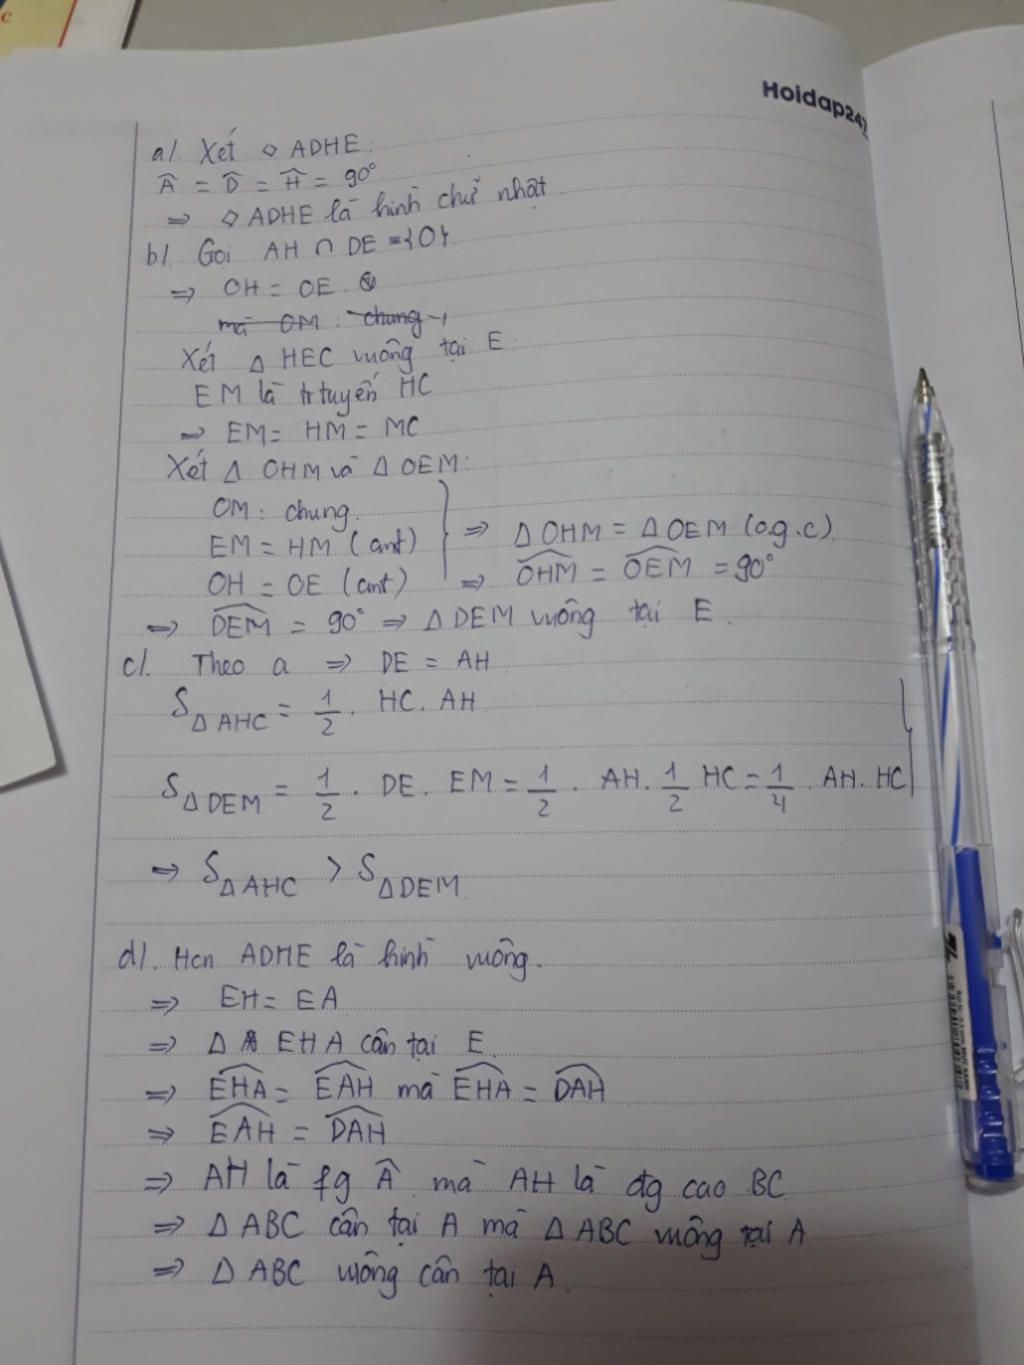 c
Hoidap247
a). Xét ◇ ADHE.
Â = D̂ = Ĥ = 90°
⇒ ◇ ADHE là hình chữ nhật.
b). Gọi AH ∩ DE = {O}
⇒ OH = OE.
mà OM : chung
Xét Δ HEC vuông tại E.
EM là tr tuyến HC
⇒ EM = HM = MC
Xét Δ OHM và Δ OEM:
OM: chung.
EM = HM (cmt)
OH = OE (cmt)
⇒ Δ OHM = Δ OEM (c.g.c).
⇒ OHM = OEM = 90°
⇒ DEM = 90° ⇒ Δ DEM vuông tại E.
c). Theo a ⇒ DE = AH.
S Δ AHC = 1/2 . HC. AH
S Δ DEM = 1/2 . DE. EM = 1/2 . AH. 1/2 HC = 1/4 . AH. HC
⇒ S Δ AHC > S Δ DEM.
d). Hcn ADHE là hình vuông.
⇒ EH = EA
⇒ Δ EHA cân tại E.
⇒ EHA = EAH mà EHA = DAH
⇒ EAH = DAH
⇒ AH là fg Â mà AH là đg cao BC
⇒ Δ ABC cân tại A mà Δ ABC vuông tại A
⇒ Δ ABC vuông cân tại A.